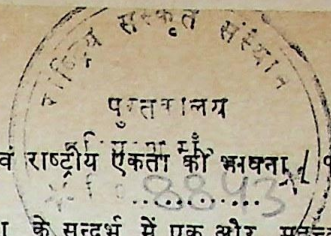 राष्ट्रीय संस्कृत संस्थान
पुस्तकालय
वं राष्ट्रीय एकता की भावना /
8843
के सन्दर्भ में एक और